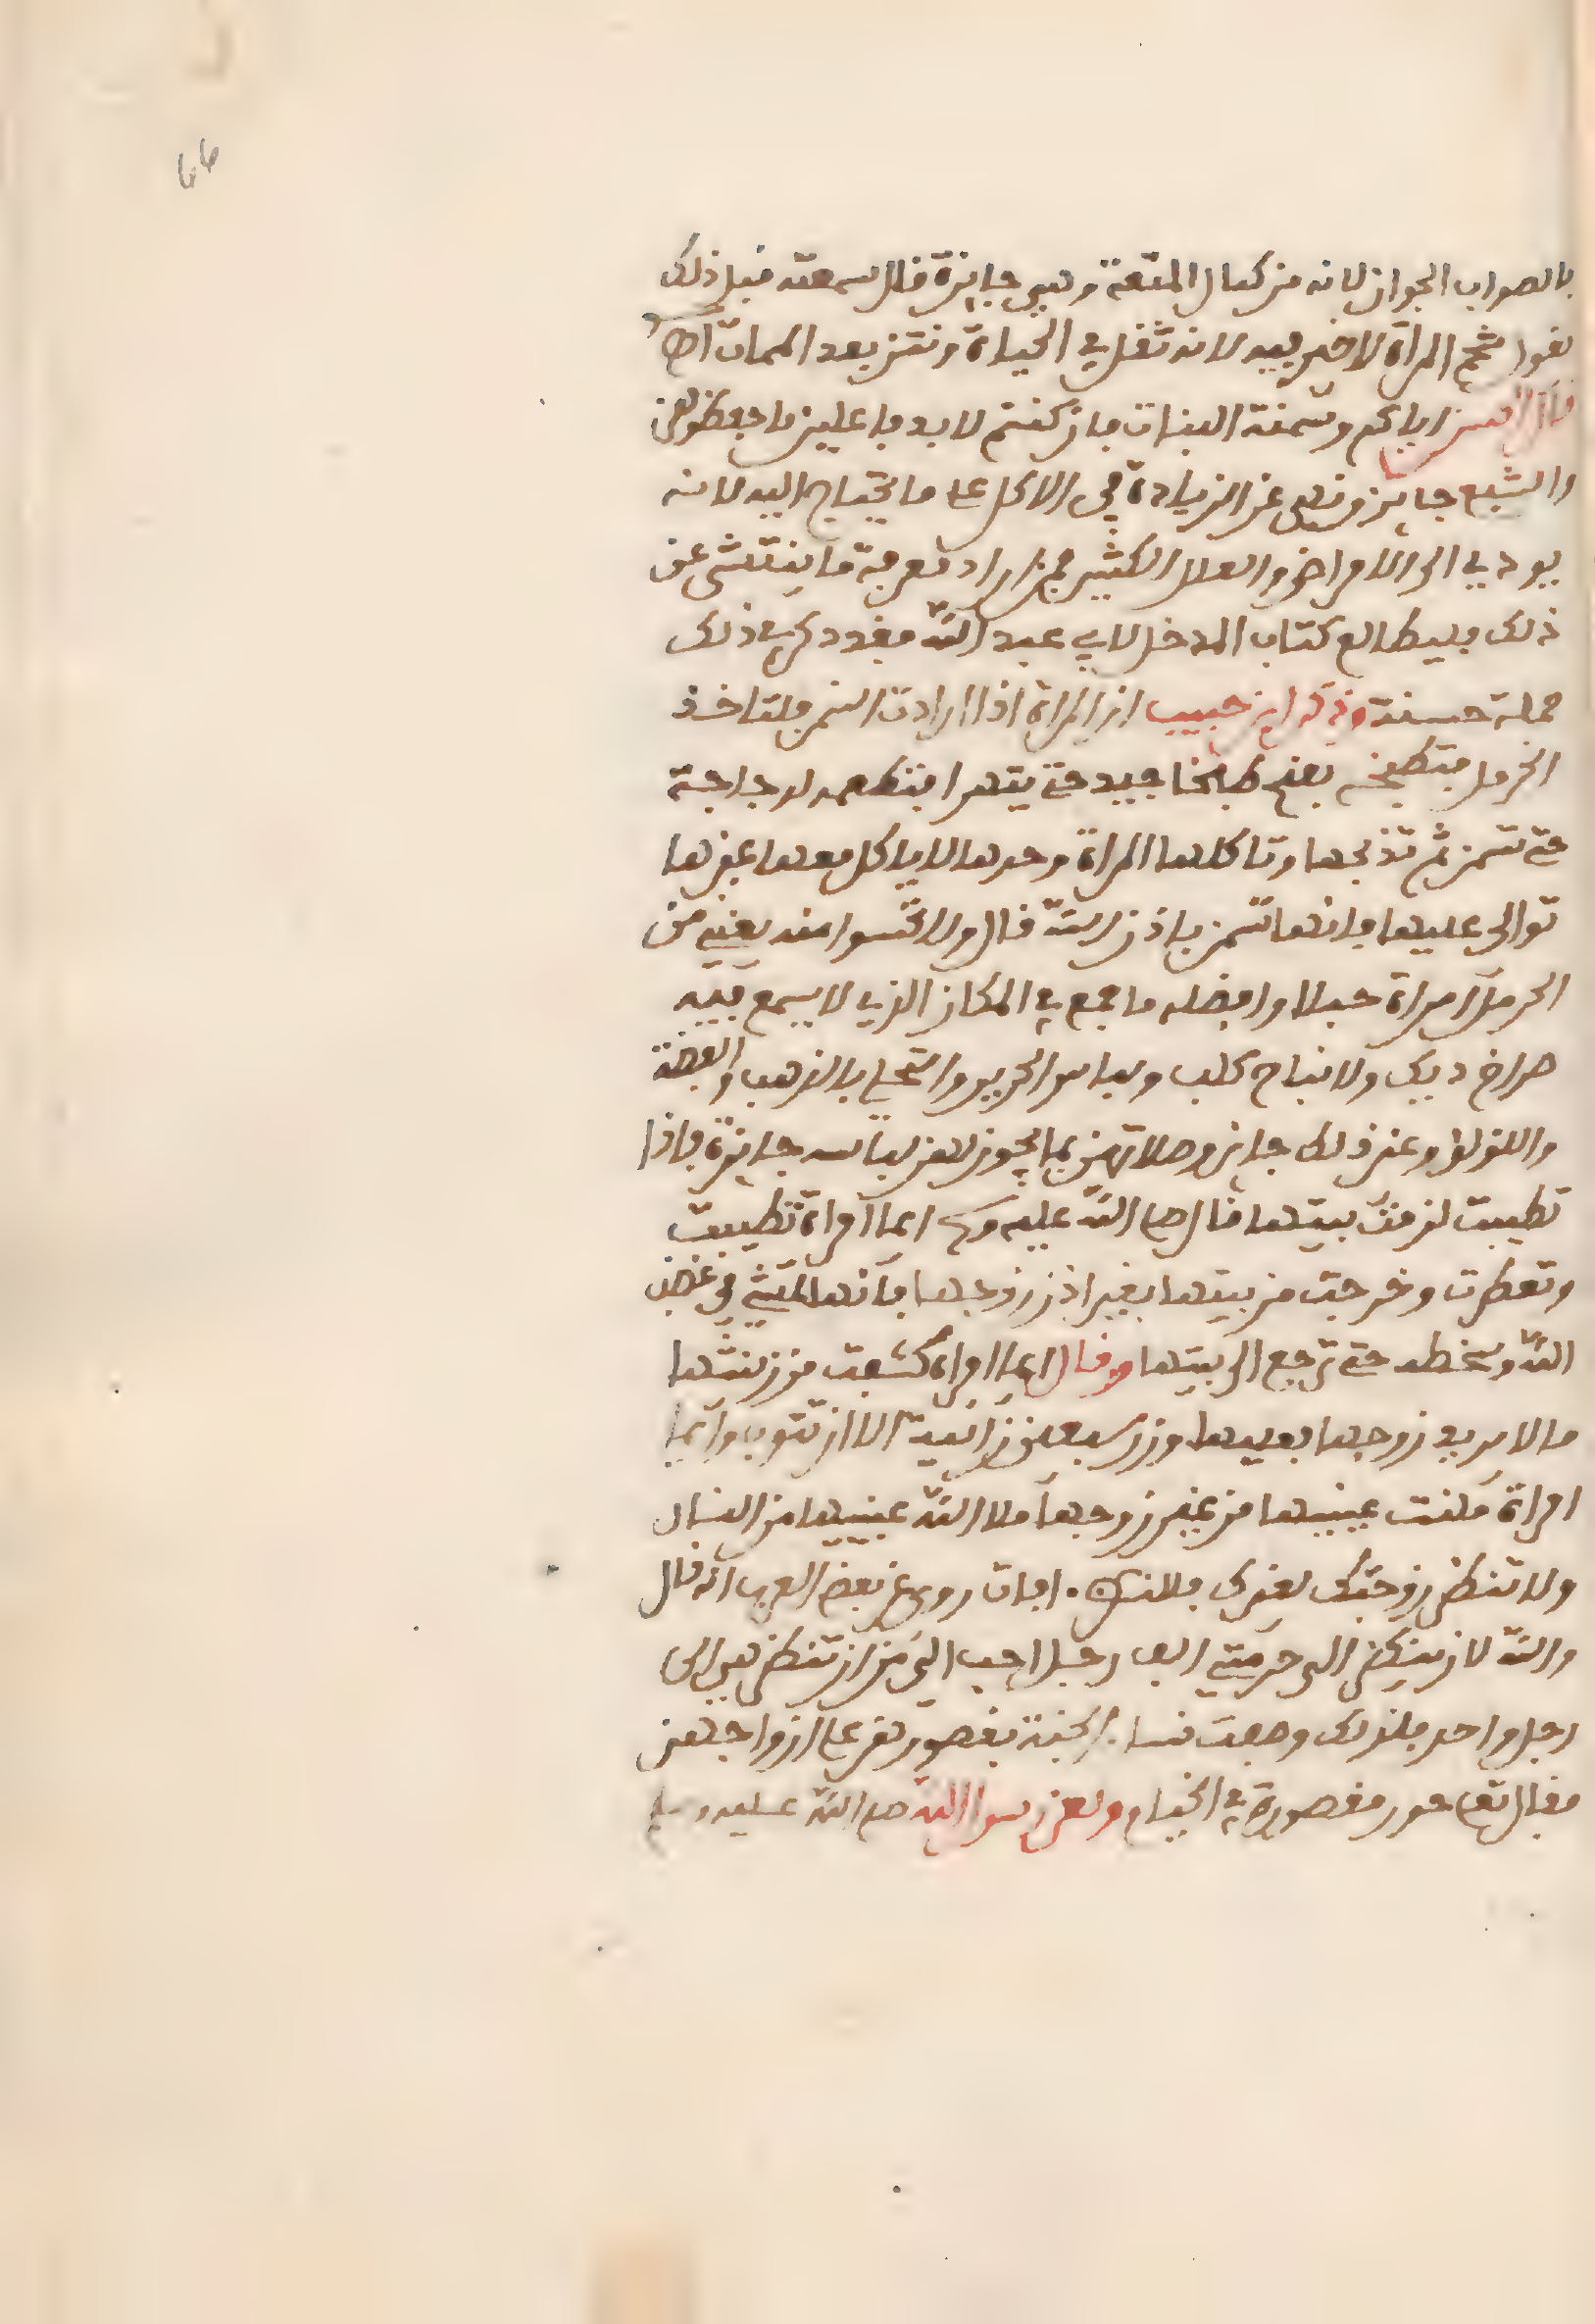 66
بالصواب الجواز لانه من كمال المتعة وهي جايزة قال سمعته قبل ذلك
يقول شحم المراة لا خير فيه لانه ثقل في الحياة ونتن بعد الممات اهـ
قال الحسن اياكم وسمنة البنات فان كنتم لا بد فاعلين فاحفظوهن
والشبع جايز ونهي عن الزيادة في الاكل على ما يحتاج اليه لانه
يودي الى الامراض والعلل الكثير فمن اراد معرفة ما ينتشى عن
ذلك فليطالع كتاب المدخل لابي عبد الله فقد ذكر في ذلك
جملة حسنة وذكر ابن حبيب ان المراة اذا ارادت السمن فلتاخذ
الحرمل فتطبخه بقمح طبخا جيد حتى يتهرا فتطعمه لدجاجة
حتى تسمن ثم تذبحها وتاكلها المراة وحدها لا ياكل معها غيرها
توالى عليها فانها تسمن باذن الله قال ولا تحسوا منه يعني من
الحرمل امراة حبلا وافضله ما جمع في المكان الذي لا يسمع فيه
صراخ ديك ولا نباح كلب ولباس الحرير والتحلي بالذهب والفضة
واللؤلؤ وغير ذلك جايز وصلاتهن بما يجوز لهن لباسه جايزة فاذا
تطيبت لزمت بيتها قال صلى الله عليه وسلم ايما امراة تطيبت
وتعطرت وخرجت من بيتها بغير اذن زوجها فانها لتمشي في غضب
الله وسخطه حتى ترجع الى بيتها وقال ايما امراة كشفت من زينتها
ما لا يريد زوجها فعليها وزر سبعين زانية الا ان تتوب وايما
امراة ملات عينيها من غير زوجها ملا الله عينيها من النار
ولا تنظر زوجتك لغيرك روي عن بعض العرب انه قال
والله لان ينظر الى حرمتي الف رجل احب الي من ان تنظر هي الى
رجل واحد فلذلك وصفت نساء الجنة بقصورهن على ازواجهن
فقال تعلى حور مقصورة في الخيام ولعن رسول الله صلى الله عليه وسلم